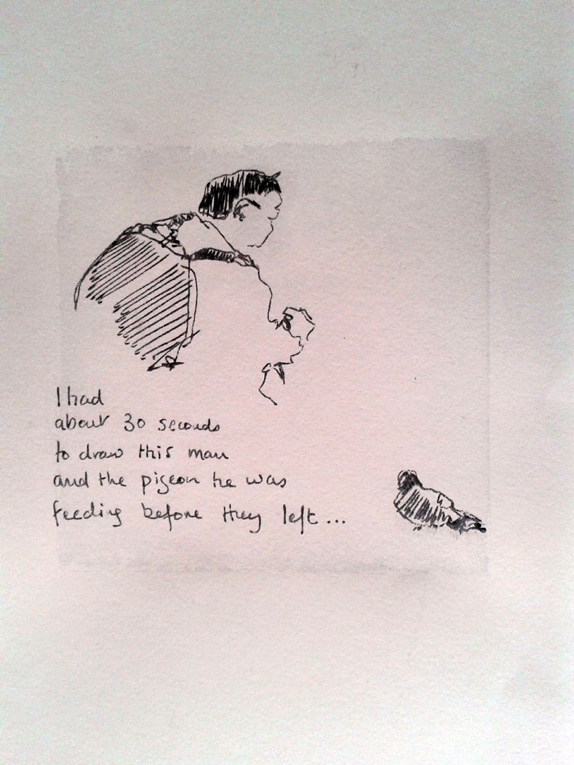 I had
about 30 seconds
to draw this man
and the pigeon he was
feeding before they left...